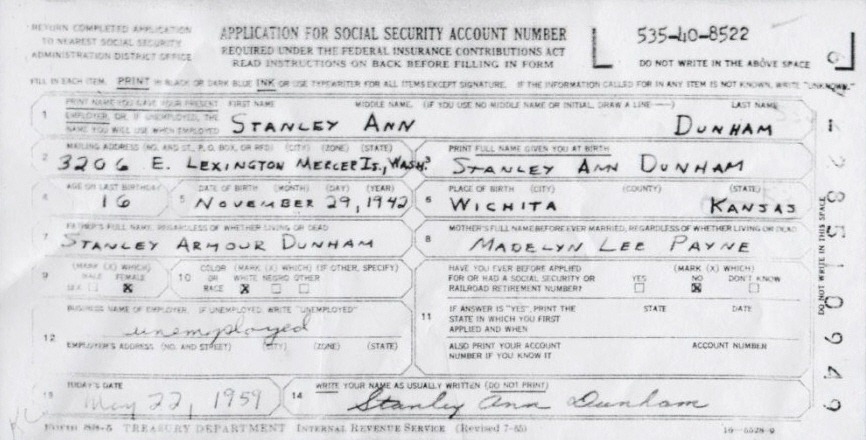 RETURN COMPLETED APPLICATION
TO NEAREST SOCIAL SECURITY
ADMINISTRATION DISTRICT OFFICE
APPLICATION FOR SOCIAL SECURITY ACCOUNT NUMBER
REQUIRED UNDER THE FEDERAL INSURANCE CONTRIBUTIONS ACT
READ INSTRUCTIONS ON BACK BEFORE FILLING IN FORM
535-40-8522
DO NOT WRITE IN THE ABOVE SPACE
FILL IN EACH ITEM. PRINT IN BLACK OR DARK BLUE INK OR USE TYPEWRITER FOR ALL ITEMS EXCEPT SIGNATURE. IF THE INFORMATION CALLED FOR IN ANY ITEM IS NOT KNOWN, WRITE "UNKNOWN."
1 PRINT NAME YOU GAVE YOUR PRESENT EMPLOYER, OR, IF UNEMPLOYED, THE NAME YOU WILL USE WHEN EMPLOYED
FIRST NAME MIDDLE NAME (IF YOU USE NO MIDDLE NAME OR INITIAL, DRAW A LINE —) LAST NAME
STANLEY ANN DUNHAM
2 MAILING ADDRESS (NO. AND ST., P. O. BOX, OR RFD) (CITY) (ZONE) (STATE)
3206 E. LEXINGTON MERCER IS., WASH.
3 PRINT FULL NAME GIVEN YOU AT BIRTH
STANLEY ANN DUNHAM
AGE ON LAST BIRTHDAY
16
5 DATE OF BIRTH (MONTH) (DAY) (YEAR)
NOVEMBER 29, 1942
6 PLACE OF BIRTH (CITY) (COUNTY) (STATE)
WICHITA KANSAS
7 FATHER'S FULL NAME, REGARDLESS OF WHETHER LIVING OR DEAD
STANLEY ARMOUR DUNHAM
8 MOTHER'S FULL NAME BEFORE EVER MARRIED, REGARDLESS OF WHETHER LIVING OR DEAD
MADELYN LEE PAYNE
9 (MARK (X) WHICH)
MALE FEMALE
SEX X
10 COLOR (MARK (X) WHICH) (IF OTHER, SPECIFY)
OR WHITE NEGRO OTHER
RACE X
11 HAVE YOU EVER BEFORE APPLIED FOR OR HAD A SOCIAL SECURITY OR RAILROAD RETIREMENT NUMBER?
(MARK (X) WHICH)
YES NO DON'T KNOW
X
IF ANSWER IS "YES", PRINT THE STATE IN WHICH YOU FIRST APPLIED AND WHEN
STATE DATE
ALSO PRINT YOUR ACCOUNT NUMBER IF YOU KNOW IT
ACCOUNT NUMBER
12 BUSINESS NAME OF EMPLOYER. IF UNEMPLOYED, WRITE "UNEMPLOYED"
unemployed
EMPLOYER'S ADDRESS (NO. AND STREET) (CITY) (ZONE) (STATE)
13 TODAY'S DATE
May 22, 1959
14 WRITE YOUR NAME AS USUALLY WRITTEN (DO NOT PRINT)
Stanley Ann Dunham
TREASURY DEPARTMENT INTERNAL REVENUE SERVICE (Revised 7-55)
DO NOT WRITE IN THIS SPACE